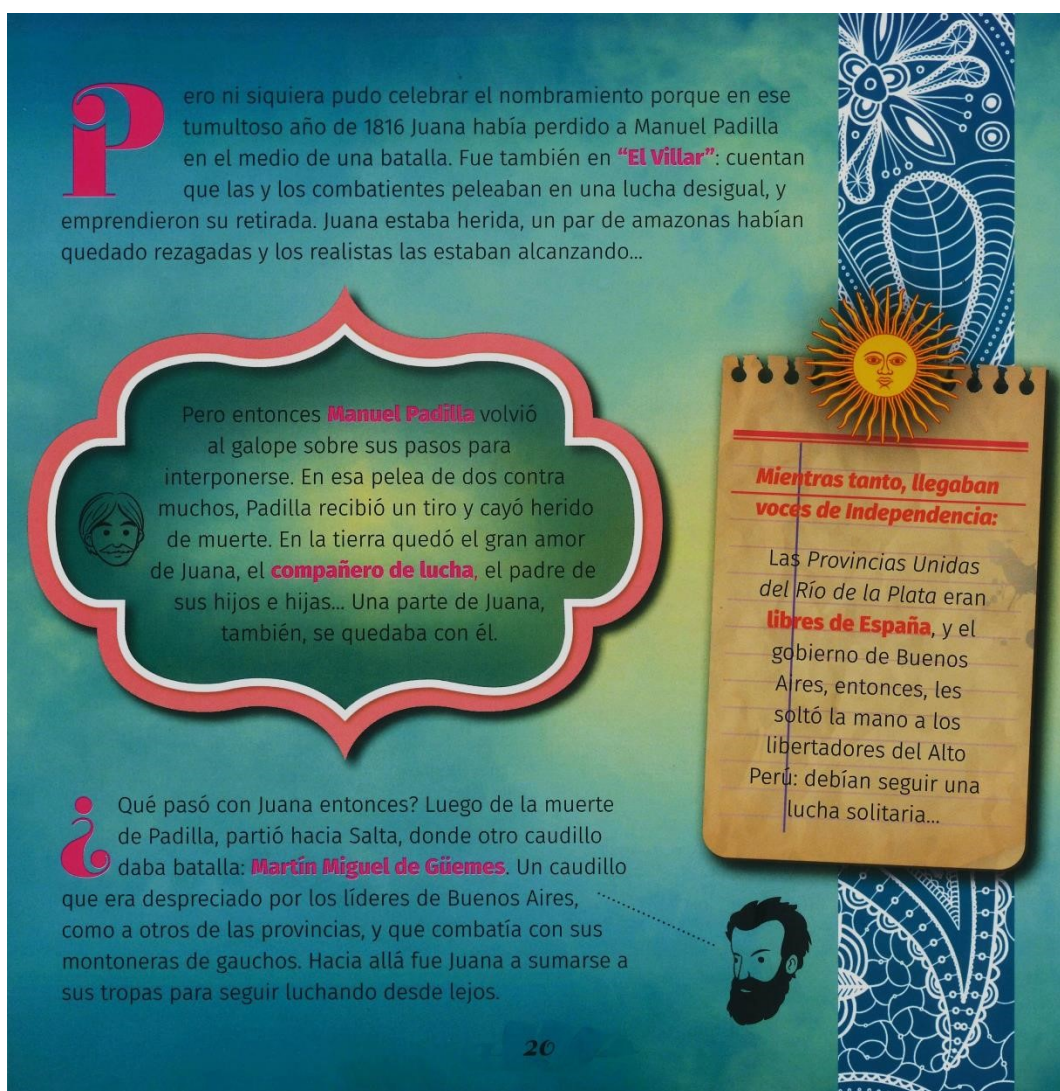 Pero ni siquiera pudo celebrar el nombramiento porque en ese
tumultoso año de 1816 Juana había perdido a Manuel Padilla
en el medio de una batalla. Fue también en “El Villar”: cuentan
que las y los combatientes peleaban en una lucha desigual, y
emprendieron su retirada. Juana estaba herida, un par de amazonas habían
quedado rezagadas y los realistas las estaban alcanzando...
Pero entonces Manuel Padilla volvió
al galope sobre sus pasos para
interponerse. En esa pelea de dos contra
muchos, Padilla recibió un tiro y cayó herido
de muerte. En la tierra quedó el gran amor
de Juana, el compañero de lucha, el padre de
sus hijos e hijas... Una parte de Juana,
también, se quedaba con él.
Mientras tanto, llegaban
voces de Independencia:
Las Provincias Unidas
del Río de la Plata eran
libres de España, y el
gobierno de Buenos
Aires, entonces, les
soltó la mano a los
libertadores del Alto
Perú: debían seguir una
lucha solitaria...
¿Qué pasó con Juana entonces? Luego de la muerte
de Padilla, partió hacia Salta, donde otro caudillo
daba batalla: Martín Miguel de Güemes. Un caudillo
que era despreciado por los líderes de Buenos Aires,
como a otros de las provincias, y que combatía con sus
montoneras de gauchos. Hacia allá fue Juana a sumarse a
sus tropas para seguir luchando desde lejos.
20